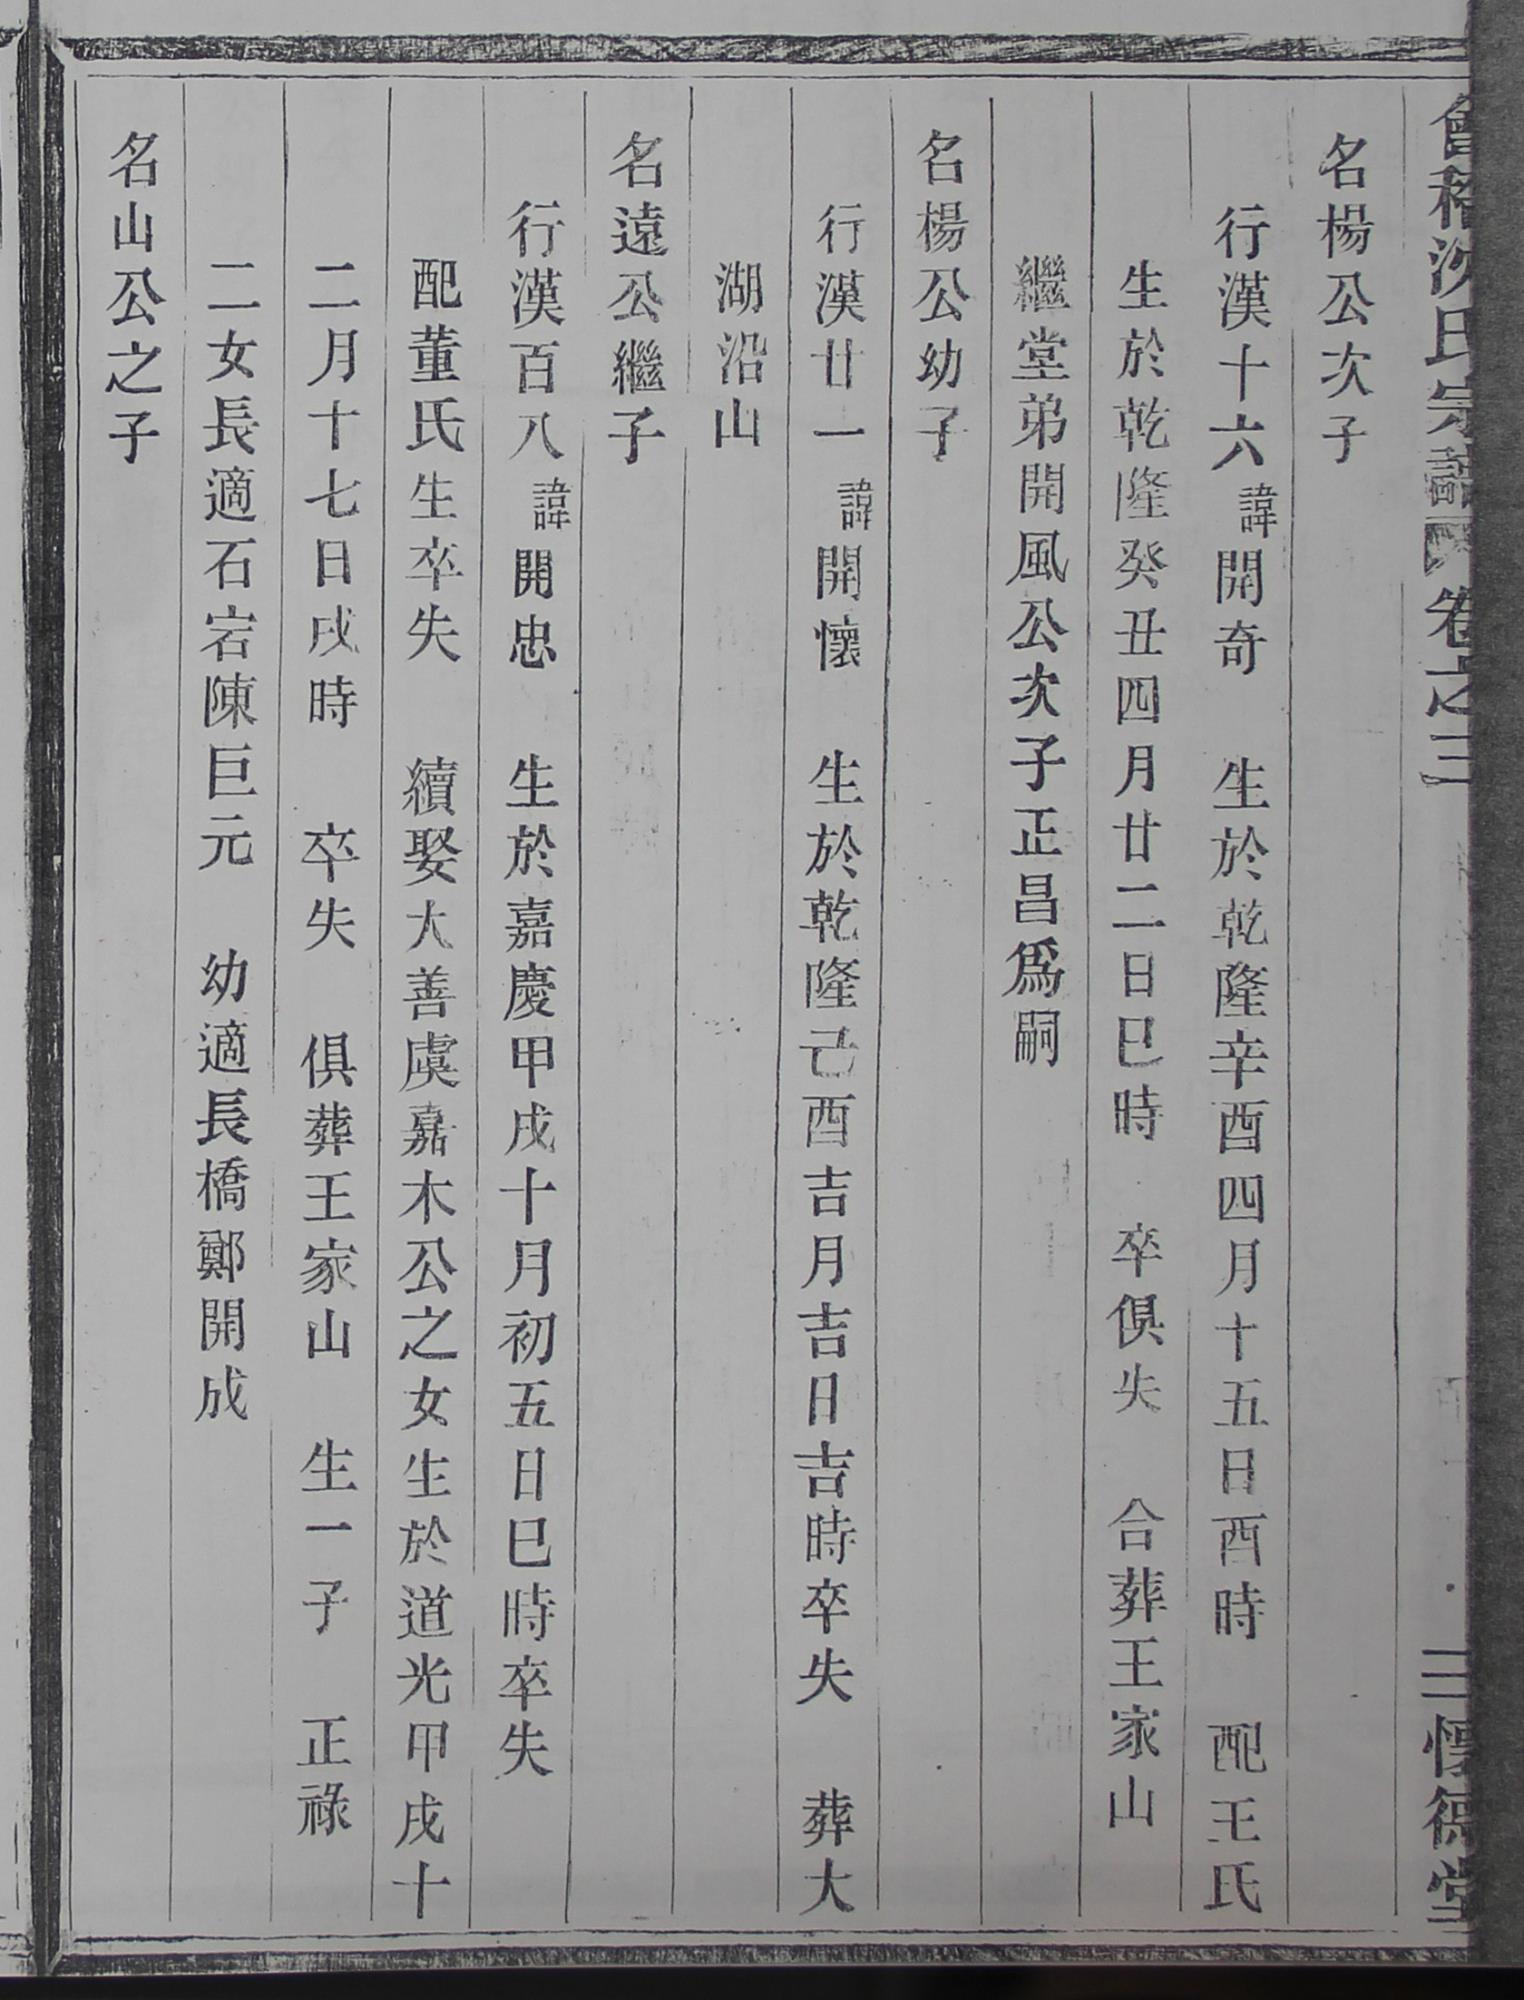 會稽沈氏宗譜 卷之三 三 懷德堂
名楊公次子
行漢十六諱開奇 生於乾隆辛酉四月十五日酉時 配王氏
生於乾隆癸丑四月廿二日巳時 卒俱失 合葬王家山
繼堂弟開風公次子正昌爲嗣
名楊公幼子
行漢廿一諱開懷 生於乾隆己酉吉月吉日吉時卒失 葬大
湖沿山
名遠公繼子
行漢百八諱開忠 生於嘉慶甲戌十月初五日巳時卒失
配董氏生卒失 續娶大善虞嘉木公之女生於道光甲戌十
二月十七日戌時 卒失 俱葬王家山 生一子 正祿
二女長適石宕陳巨元 幼適長橋鄭開成
名山公之子